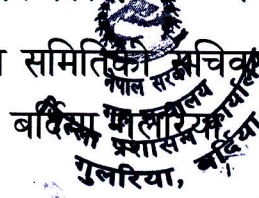 समितिको सचिव
बर्दिया गुलरिया
नेपाल सरकार
गृह मन्त्रालय
जिल्ला प्रशासन कार्यालय
गुलरिया, बर्दिया